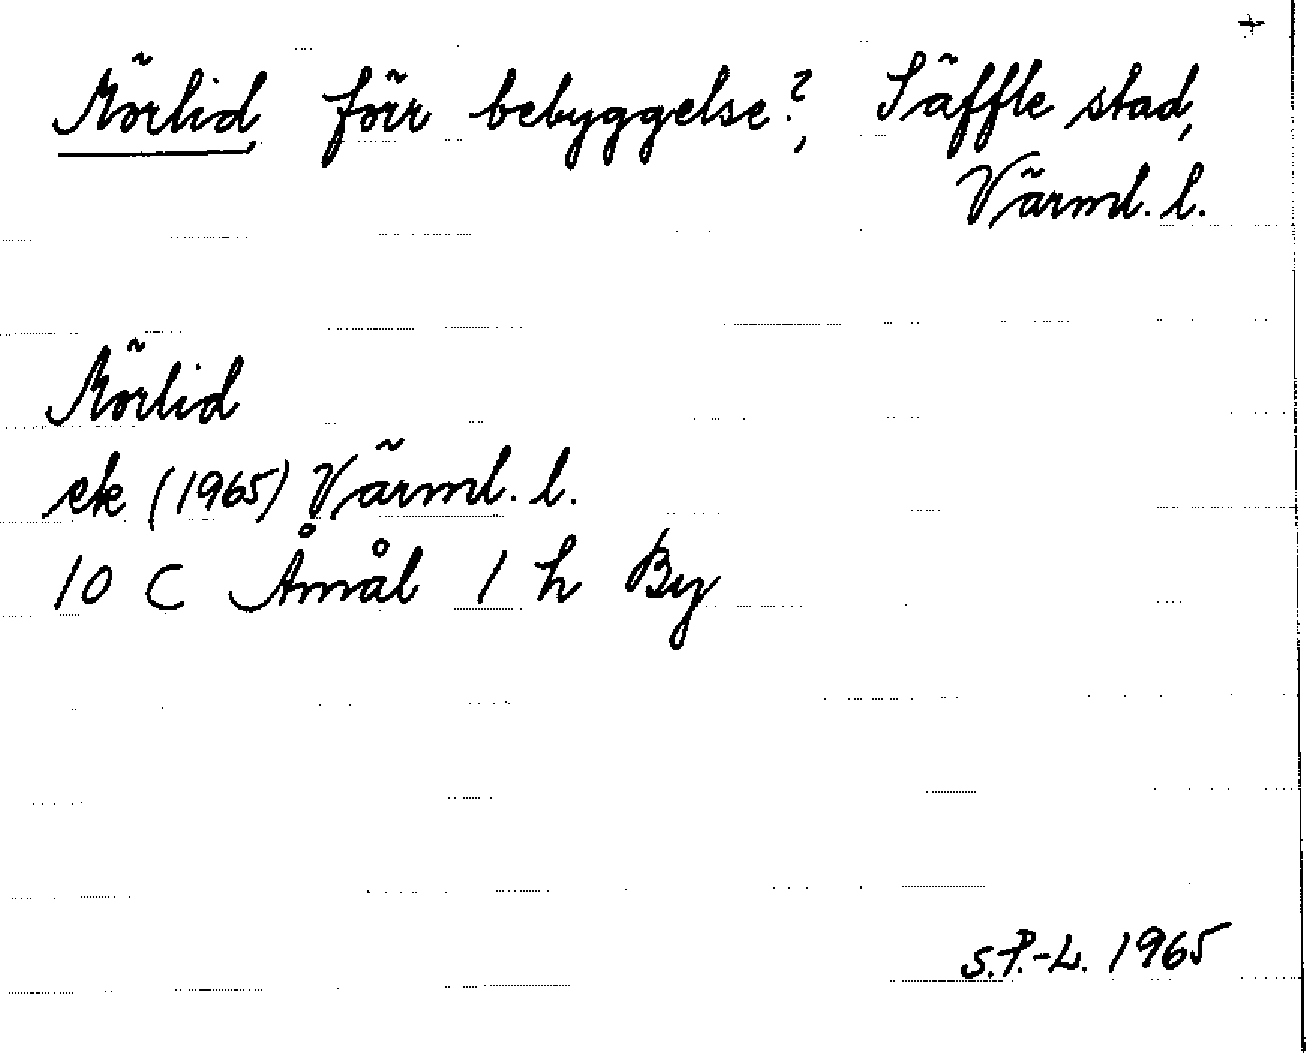 +
Mörlid, förr bebyggelse?, Säffle stad,
Värml. l.
Mörlid
ek (1965) Värml. l.
10 C Åmål 1 h By
S.P.-L. 1965